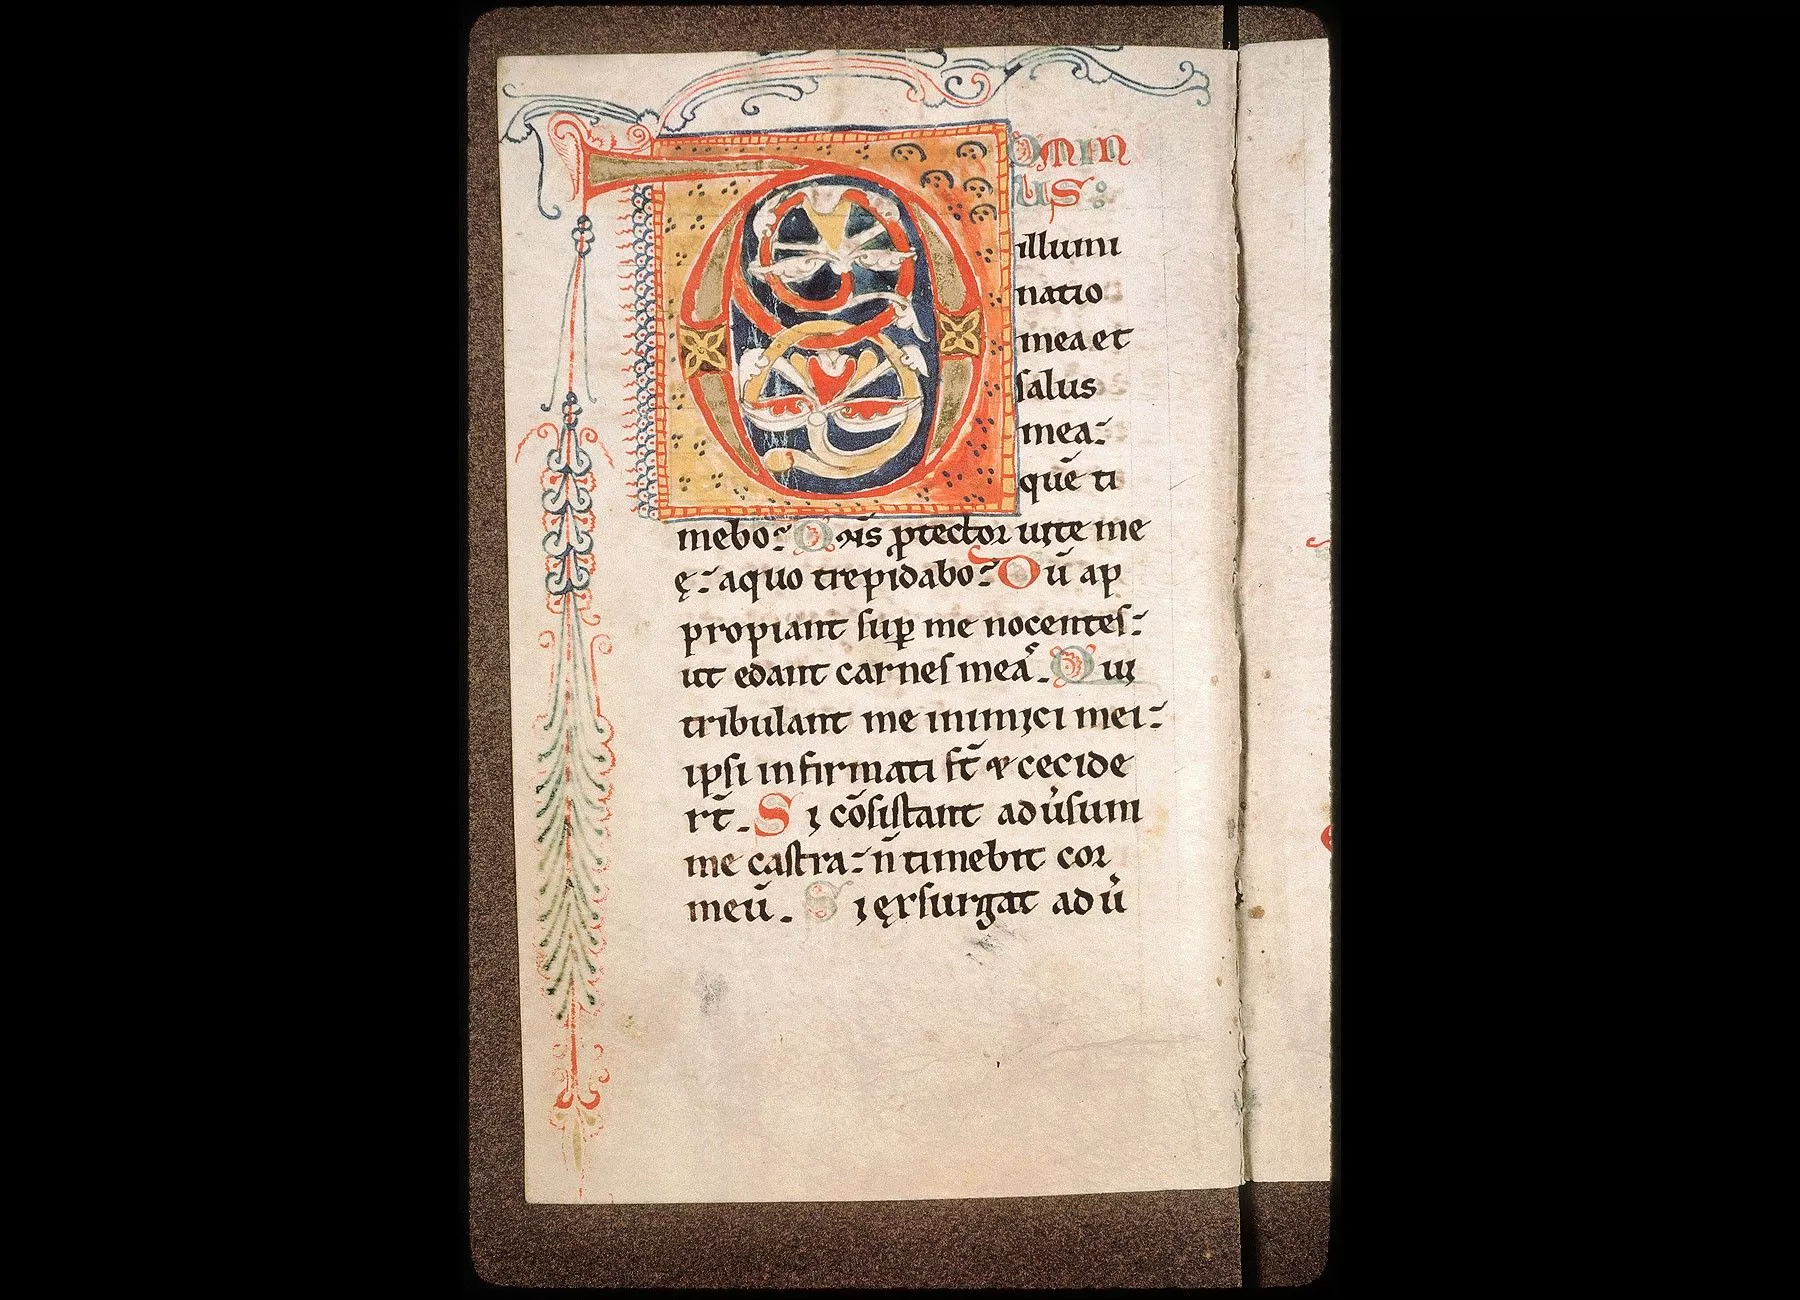 Domin
us:
illumi
natio
mea et
salus
mea:
quē ti
mebo: Dn̄s ꝓtector uite me
ę: aquo trepidabo: Dū ap
propiant suꝑ me nocentes:
ut edant carnes meaˢ. Qui
tribulant me inimici mei:
ipsi infirmati st̄ & cecide
rt̄. Si cōsistant adu̓sum
me castra: n̄ timebit cor
meū. Si exsurgat adu̓